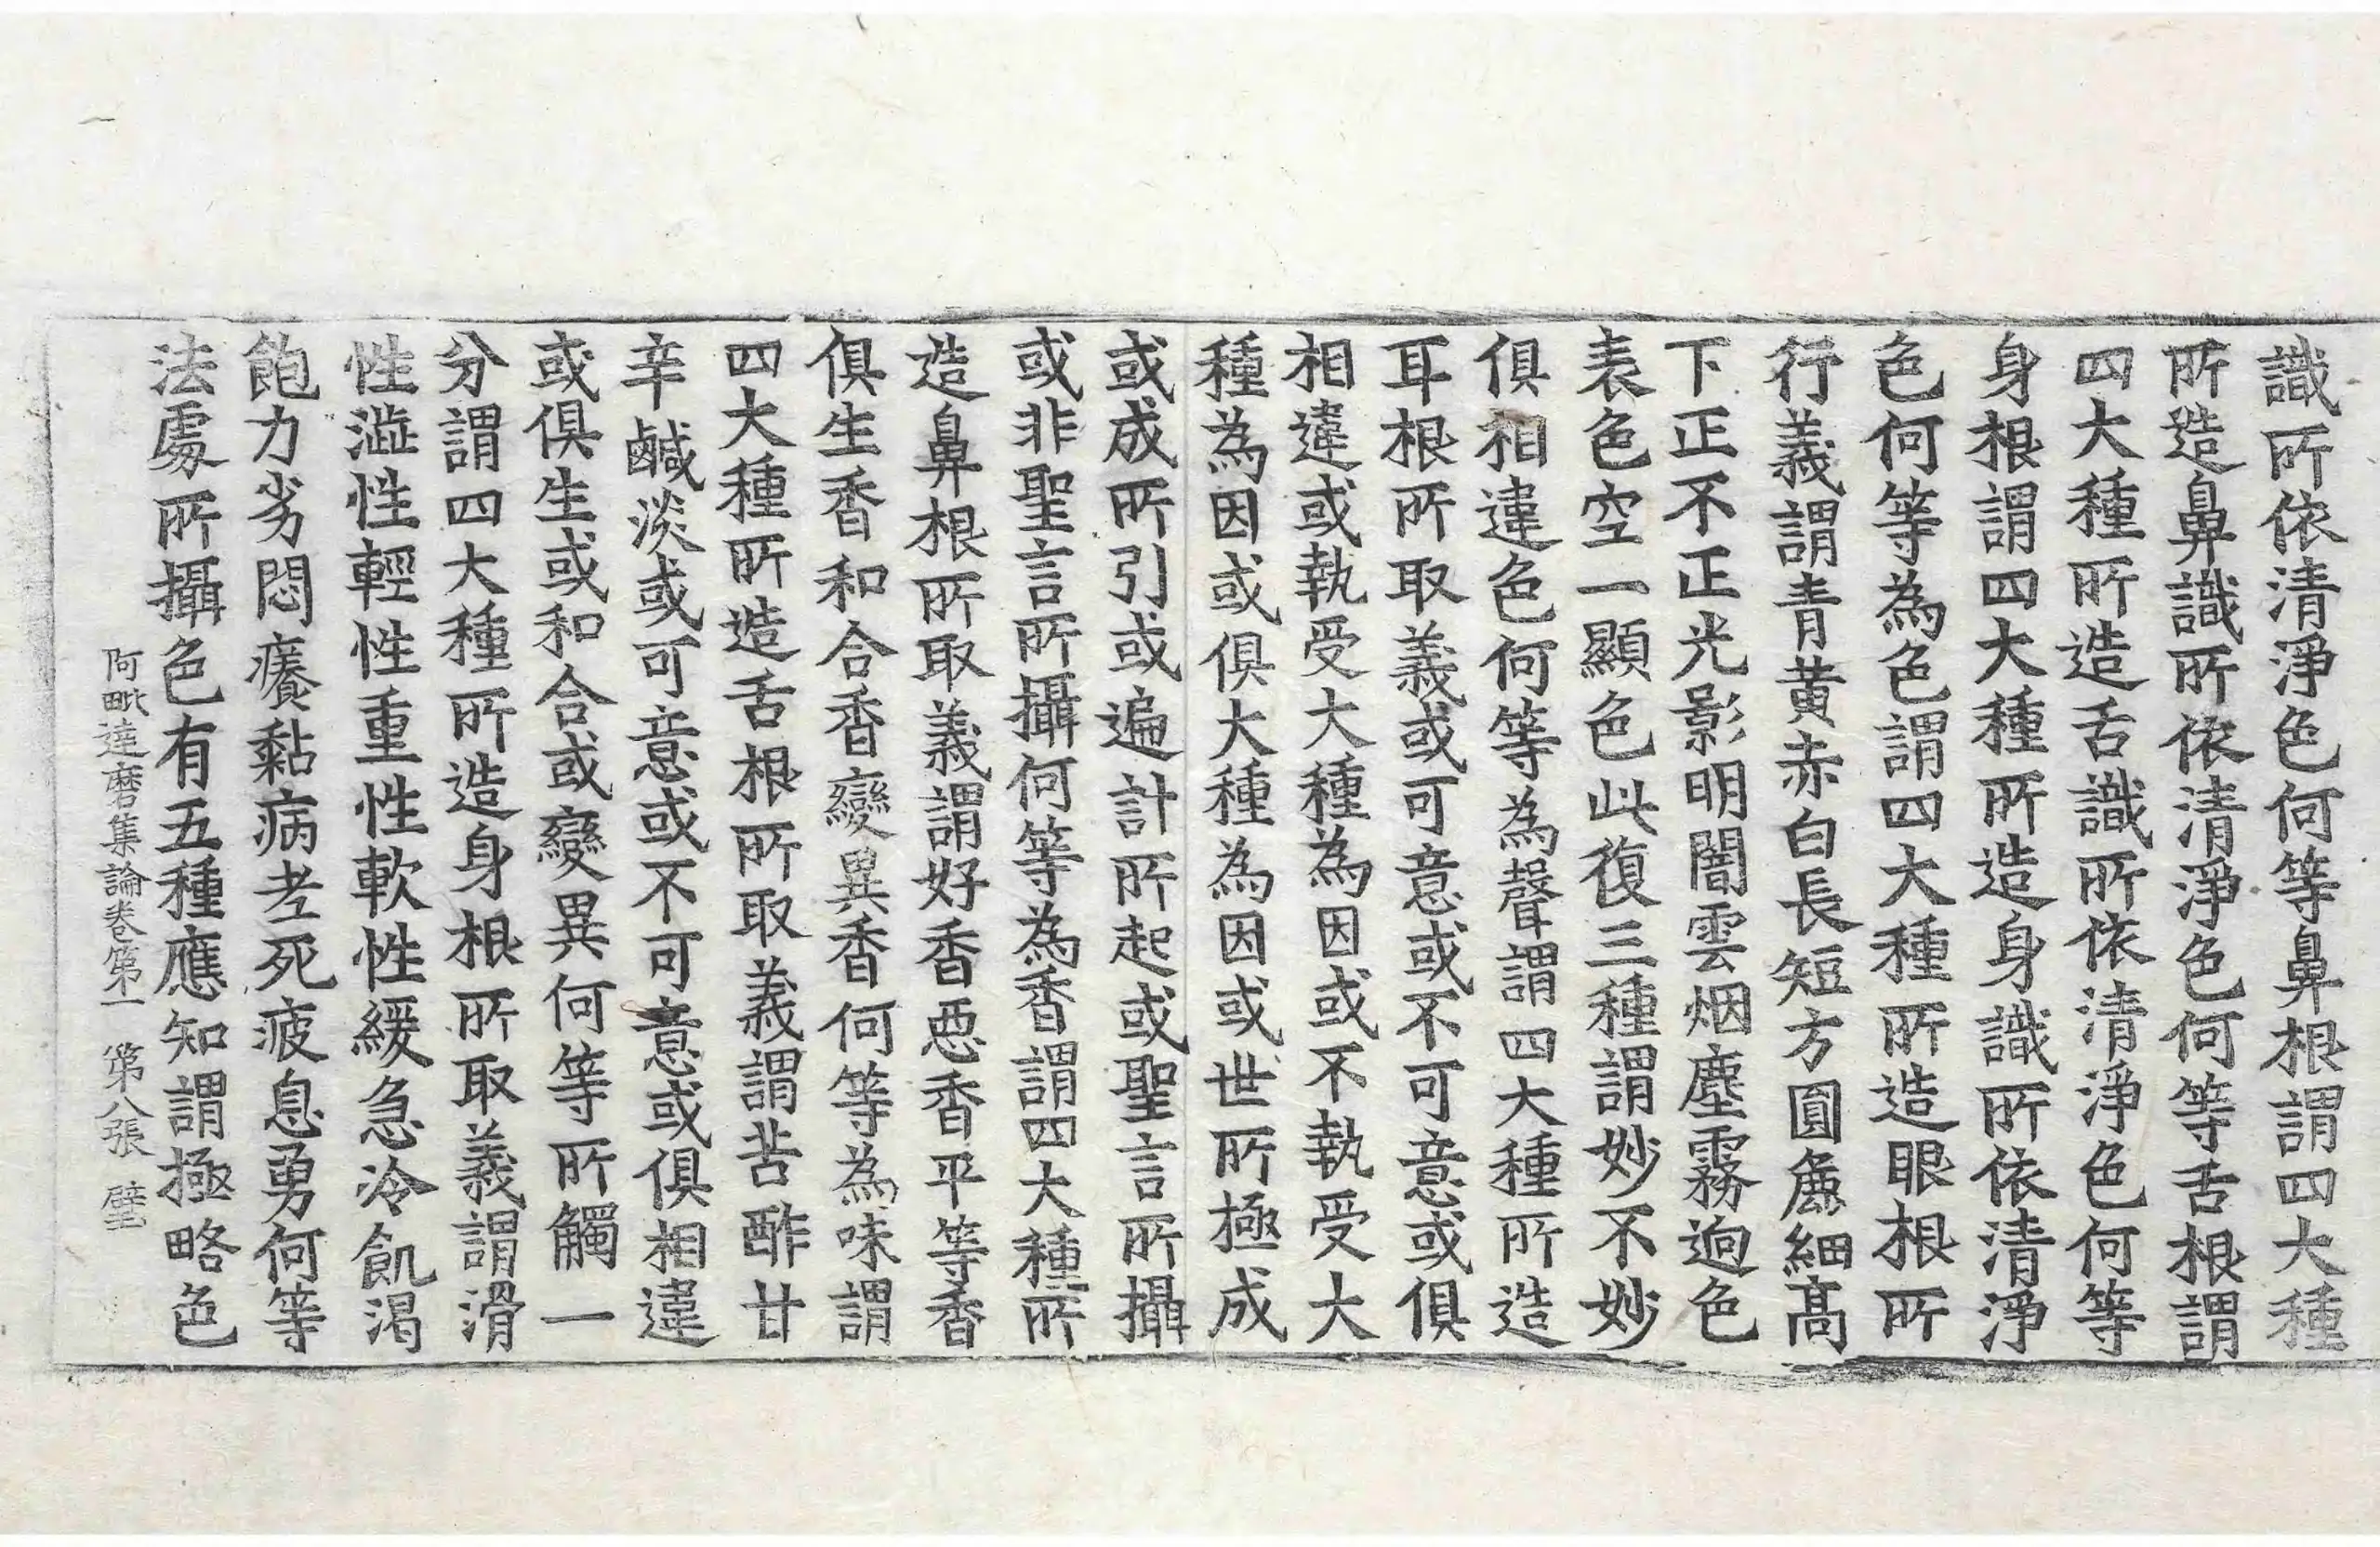 識所依清淨色何等鼻根謂四大種
所造鼻識所依清淨色何等舌根謂
四大種所造舌識所依清淨色何等
身根謂四大種所造身識所依清淨
色何等為色謂四大種所造眼根所
行義謂青黃赤白長短方圓麁細髙
下正不正光影明闇雲烟塵霧逈色
表色空一顯色此復三種謂妙不妙
俱相違色何等為聲謂四大種所造
耳根所取義或可意或不可意或俱
相違或執受大種為因或不執受大
種為因或俱大種為因或世所極成
或成所引或遍計所起或聖言所攝
或非聖言所攝何等為香謂四大種所
造鼻根所取義謂好香惡香平等香
俱生香和合香變異香何等為味謂
四大種所造舌根所取義謂苦酢甘
辛鹹淡或可意或不可意或俱相違
或俱生或和合或變異何等所觸一
分謂四大種所造身根所取義謂滑
性澁性輕性重性軟性緩急冷飢渴
飽力劣悶癢黏病老死疲息勇何等
法處所攝色有五種應知謂極略色
阿毗達磨集論卷第一 第八張 璧